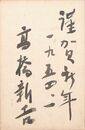 謹賀新年
一九五四、一
高橋新吉